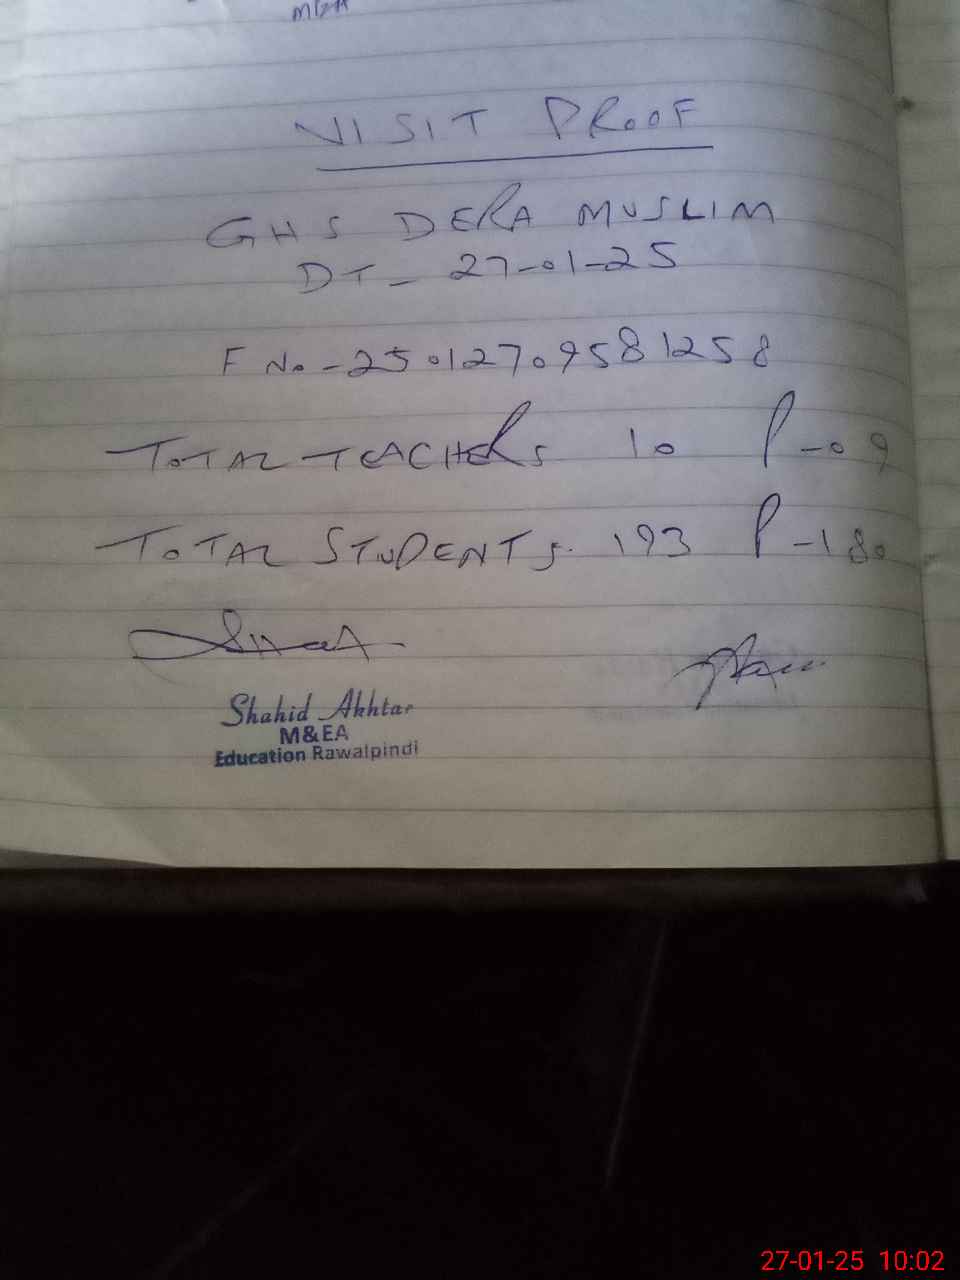 MEA
VISIT PROOF
GHS DERA MUSLIM
DT - 27-01-25
F No - 25012709581258
TOTAL TEACHERS 10 P-09
TOTAL STUDENTS. 193 P-180
Shahid Akhtar
M&EA
Education Rawalpindi
27-01-25 10:02